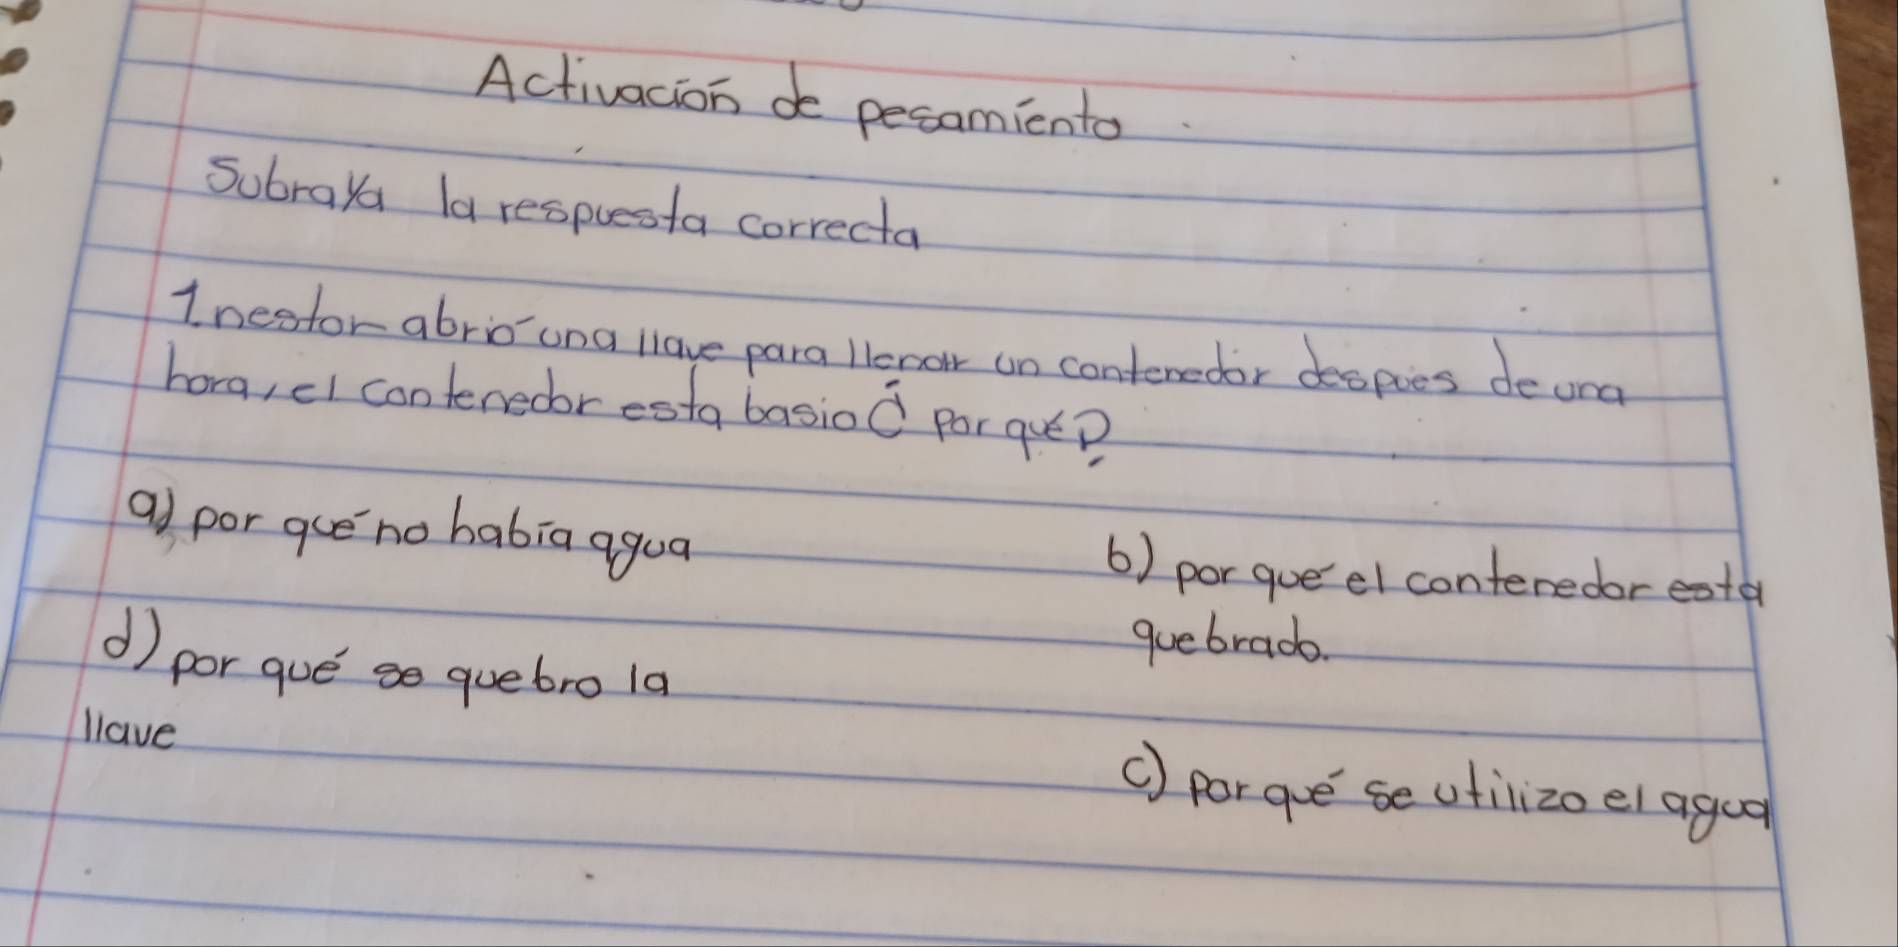 Activación de pesamiento
Subraya la respuesta correcta
1 nestor abrió una llave para llenar un contenedor despues de una
hora, el contenedor esta basio ¿ por qué?
a) por qué no había agua
b) por qué el contenedor esta
quebrado.
d) por qué se quebro la
llave
c) por qué se utilizo el agua